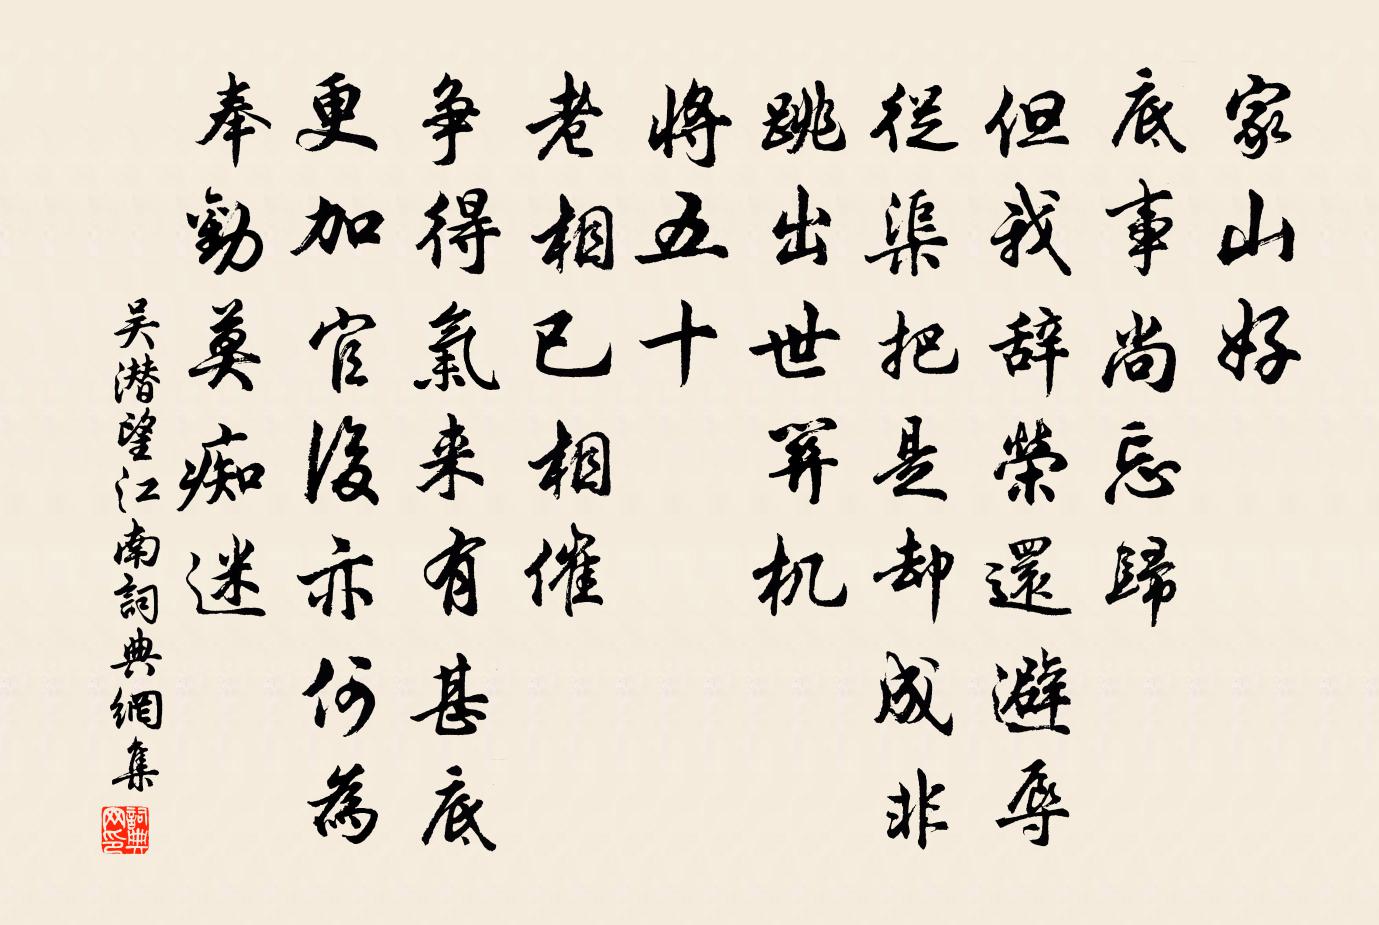 家山好
底事尚忘歸
但我辞榮還避辱
從渠把是却成非
跳出世関机
將五十
老相已相催
争得氣来有甚底
更加官後亦何為
奉勸莫痴迷
吴潜望江南詞典網集
詞典
网印